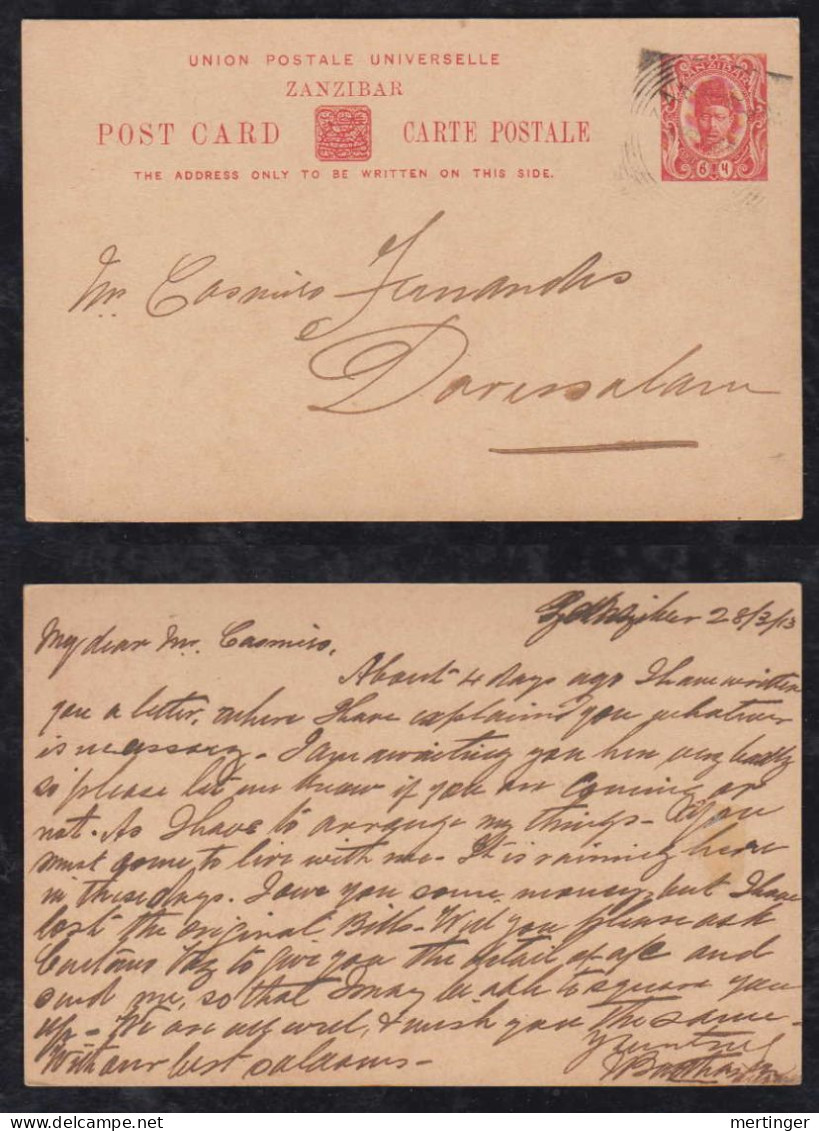 UNION POSTALE UNIVERSELLE
ZANZIBAR
POST CARD CARTE POSTALE
THE ADDRESS ONLY TO BE WRITTEN ON THIS SIDE.
ZANZIBAR
6
Mr. Casmiro Fernandes
Daressalam
28/3/13
My dear Mr. Casmiro,
About 4 days ago I have written
you a letter, where I have explained you whatever
is necessary - I am awaiting you here very badly
so please let me know if you are coming or
not. As I have to arrange my things - You
must come, to live with me. It is raining here
in these days. I owe you some money, but I have
lost the original Bills - Will you please ask
Caetano Vaz to give you the detail of a/c and
send me, so that I may be able to square you
up - We are all well, & wish you the same -
With our best salaams -
Yours truly
mertinger - www.delcampe.net